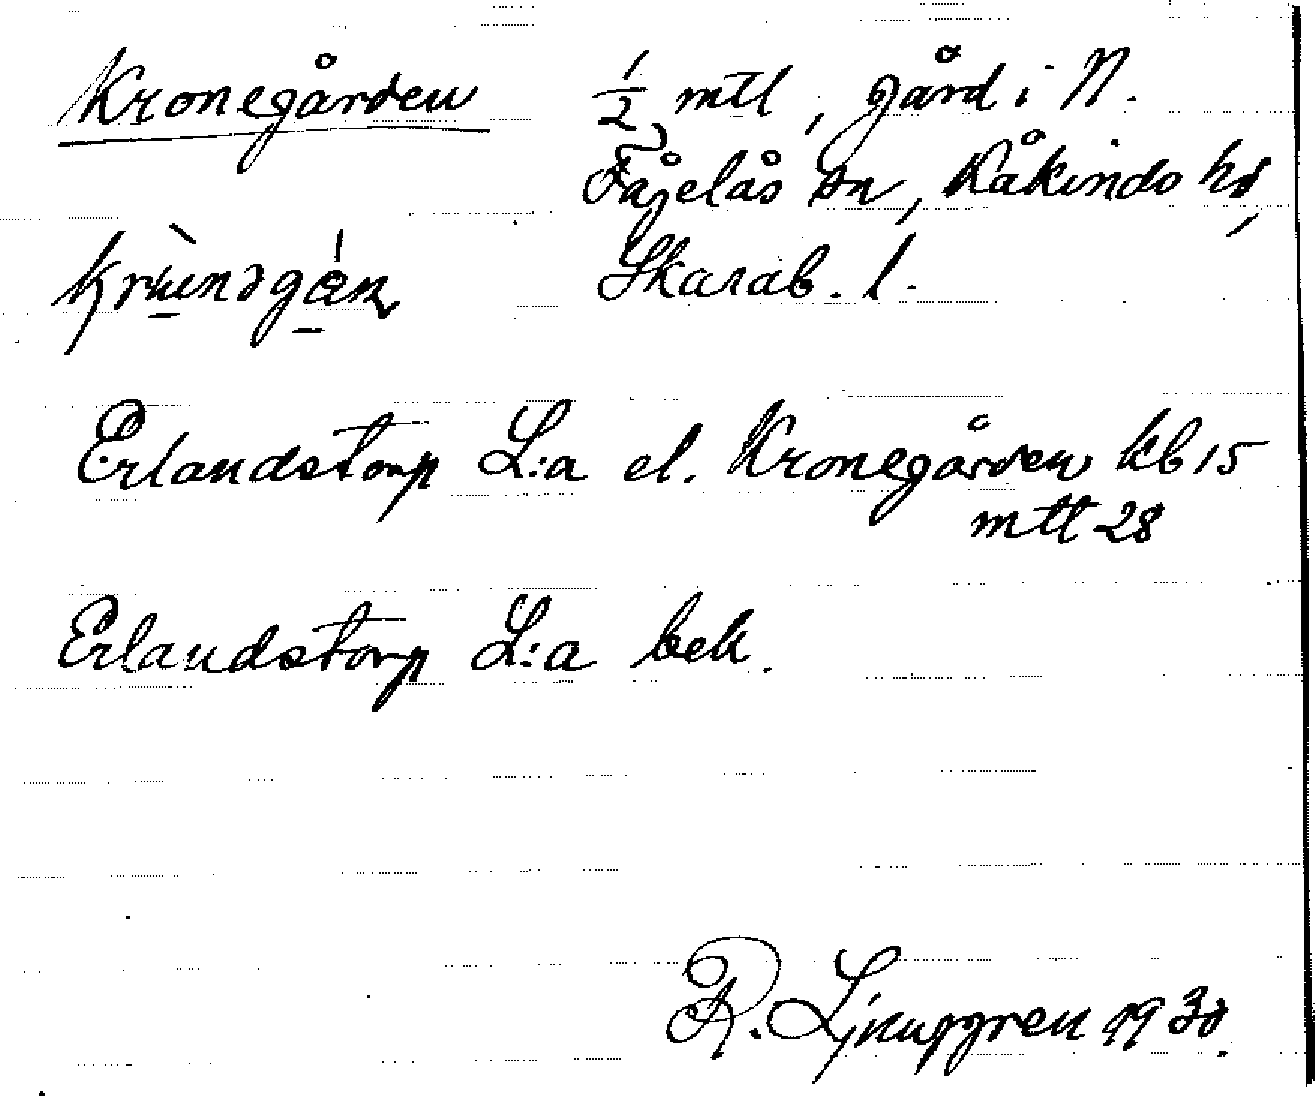 Kronegården 1/2 mtl, gård i N.
Fågelås sn, Kåkinds hd,
Skarab. l.
Erlandstorp L:a el. Kronegården kb 15
mtl 28
Erlandstorp L:a bek.
R. Ljunggren 1930.